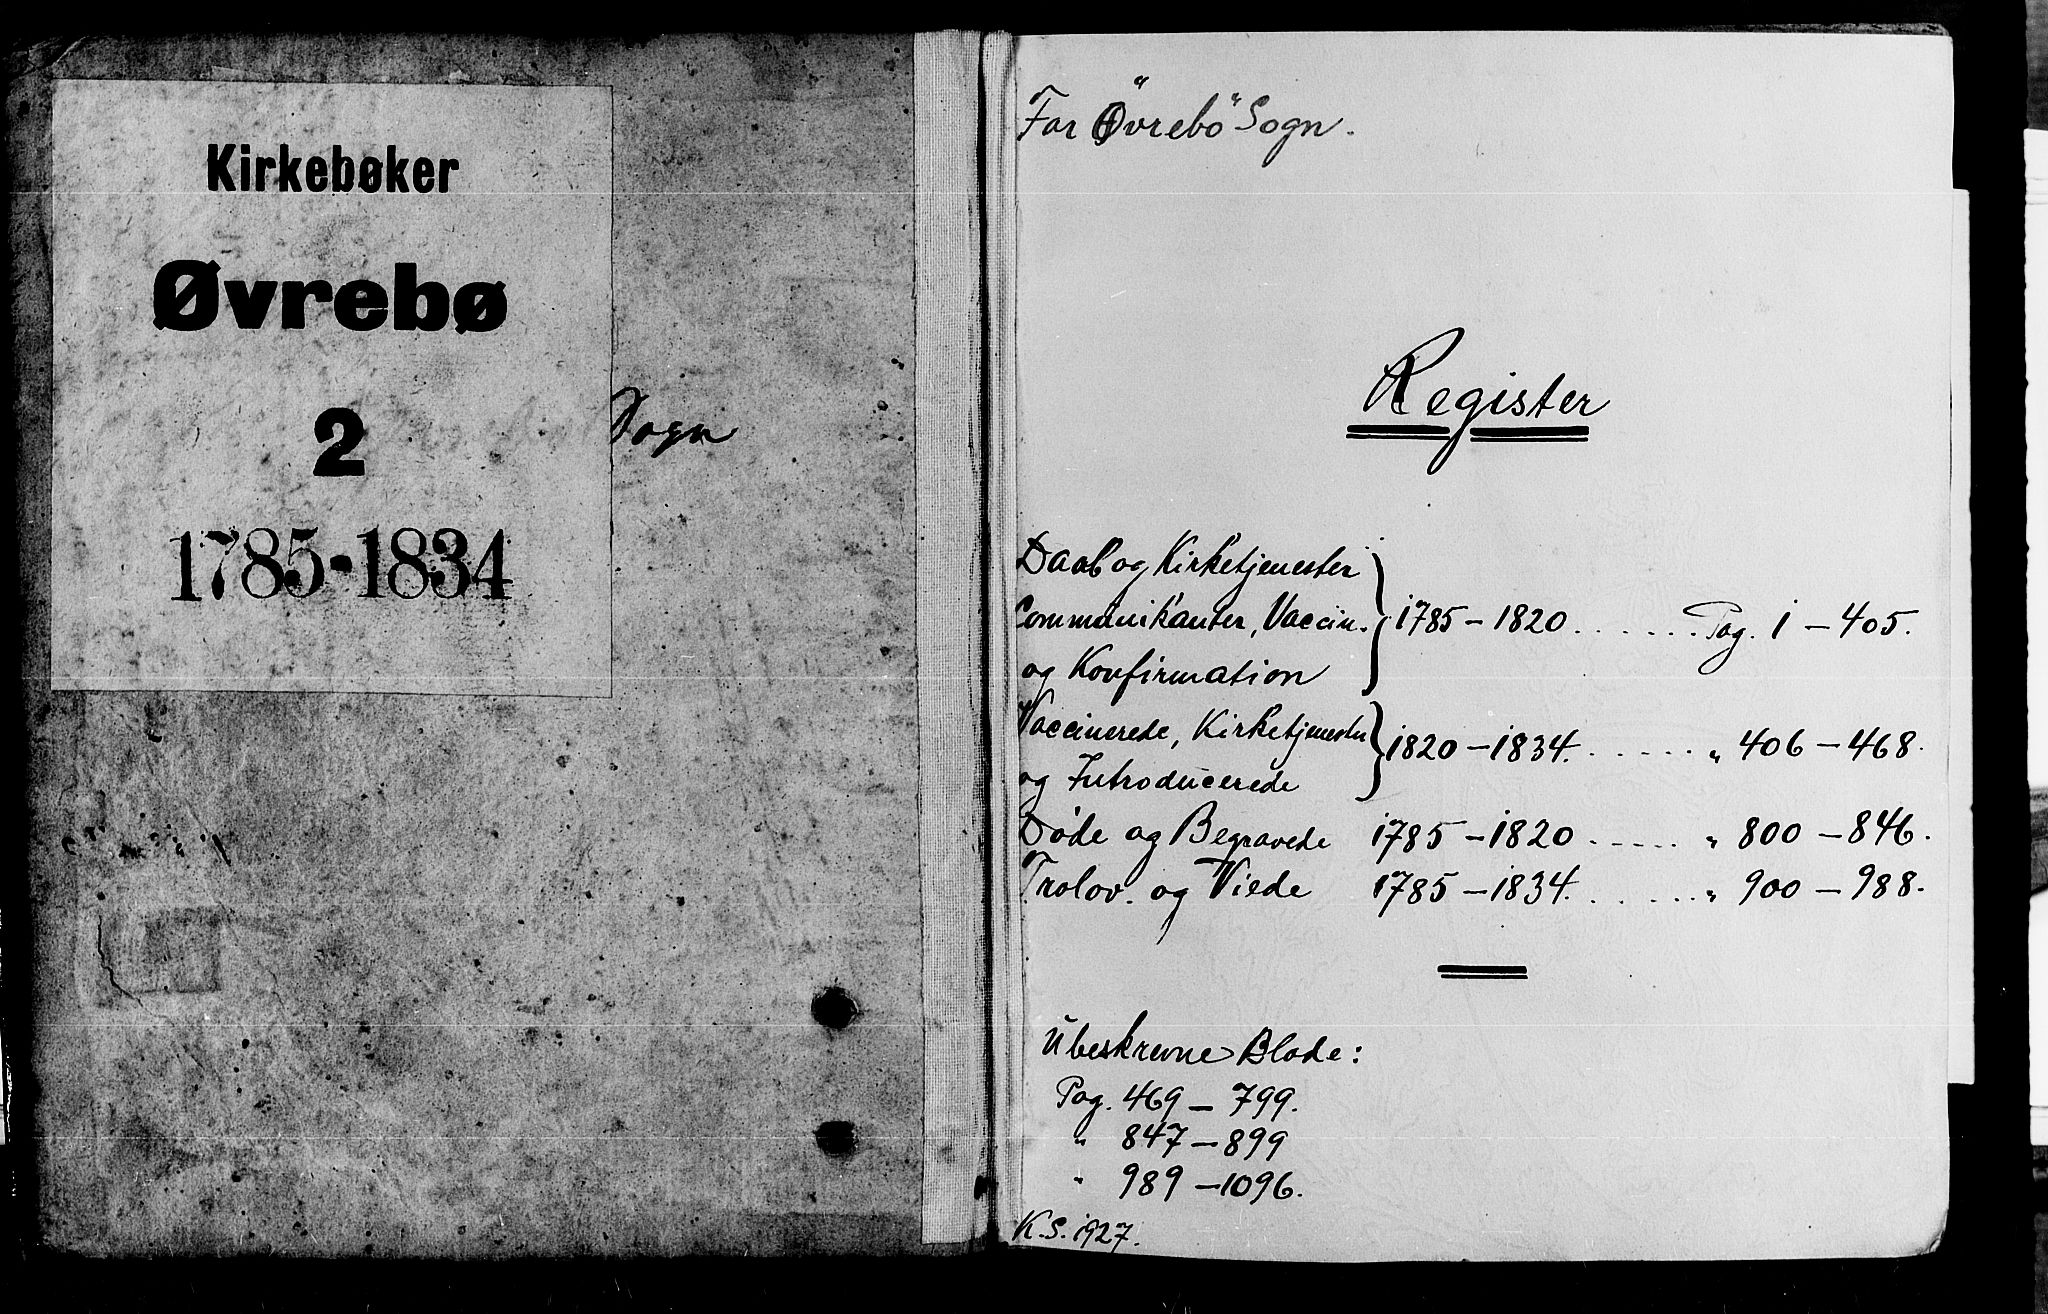 Kirkebøker
Øvrebø
2
1785-1834
Sogn
For Övrebö Sogn.
Register
Daab og Kirketjenester
Communikanter, Vaccin. } 1785 – 1820 . . . . . . . Pag. 1 – 405.
og Konfirmation
Vaccinerede, Kirketjenester } 1820 – 1834. . . . . . . „ 406 – 468.
og Introducerede
Døde og Begravede 1785 – 1820 . . . . . . „ 800 – 846.
Trolov. og Viede 1785 – 1834. . . . . . . „ 900 – 988.
Ubeskrevne Blade:
Pag. 469 – 799.
„ 847 – 899
„ 989 – 1096.
K.S. 1927.